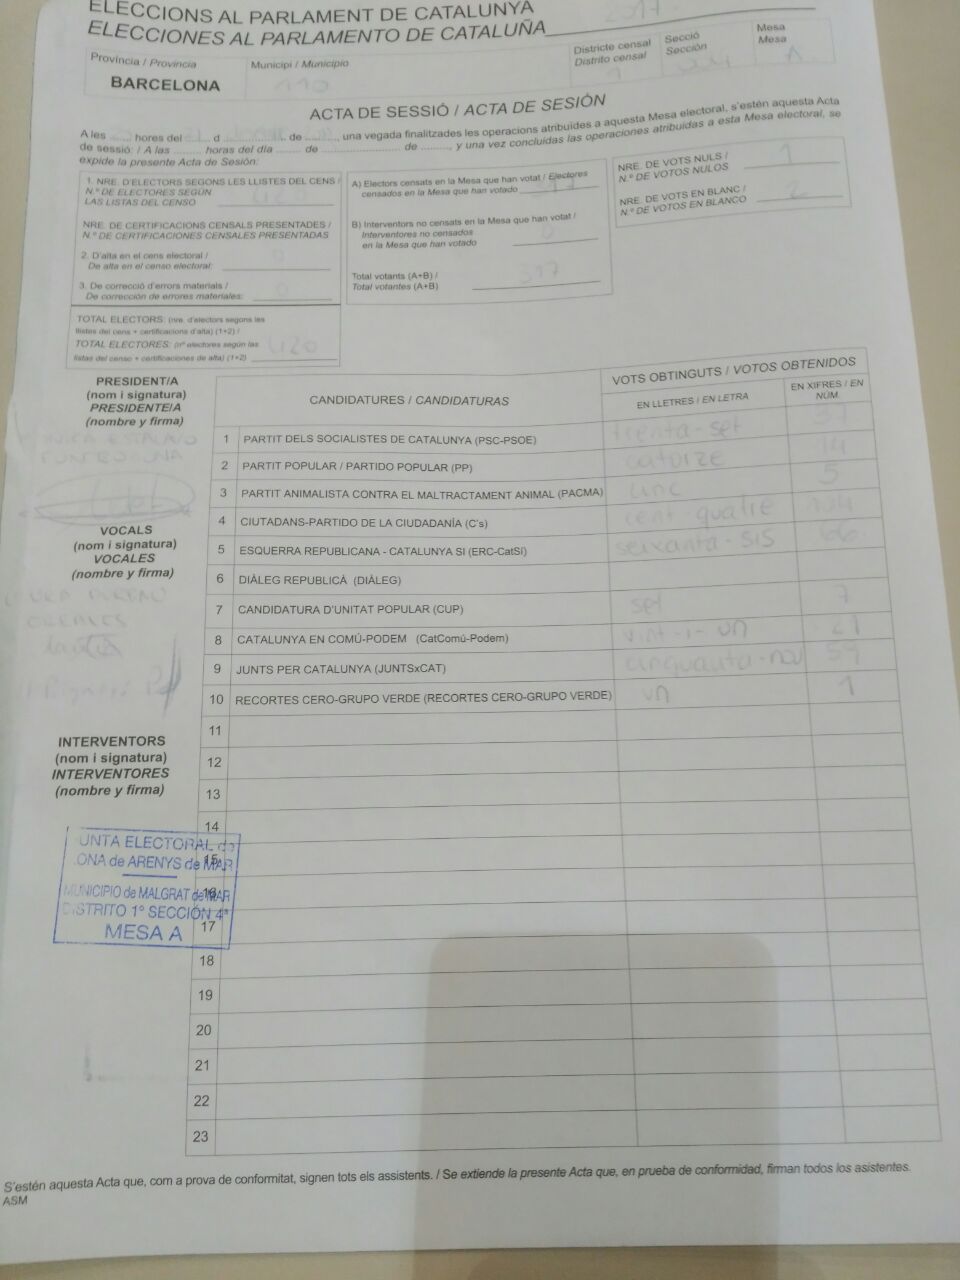 ELECCIONS AL PARLAMENT DE CATALUNYA
ELECCIONES AL PARLAMENTO DE CATALUÑA 2017
Província / Provincia
BARCELONA
Municipi / Municipio
110
Districte censal
Distrito censal
1
Secció
Sección
Mesa
Mesa
A
ACTA DE SESSIÓ / ACTA DE SESIÓN
A les hores del d de , una vegada finalitzades les operacions atribuïdes a aquesta Mesa electoral, s'estén aquesta Acta
de sessió: / A las horas del día de de , y una vez concluidas las operaciones atribuidas a esta Mesa electoral, se
expide la presente Acta de Sesión:
1. NRE. D'ELECTORS SEGONS LES LLISTES DEL CENS /
N.º DE ELECTORES SEGÚN
LAS LISTAS DEL CENSO 420
NRE. DE CERTIFICACIONS CENSALS PRESENTADES /
N.º DE CERTIFICACIONES CENSALES PRESENTADAS
2. D'alta en el cens electoral /
De alta en el censo electoral: 0
3. De correcció d'errors materials /
De corrección de errores materiales: 0
TOTAL ELECTORS: (nre. d'electors segons les
llistes del cens + certificacions d'alta) (1+2) /
TOTAL ELECTORES: (nº electores según las
listas del censo + certificaciones de alta) (1+2) 420
A) Electors censats en la Mesa que han votat / Electores
censados en la Mesa que han votado 317
B) Interventors no censats en la Mesa que han votat /
Interventores no censados
en la Mesa que han votado 0
Total votants (A+B) /
Total votantes (A+B) 317
NRE. DE VOTS NULS /
N.º DE VOTOS NULOS 1
NRE. DE VOTS EN BLANC /
N.º DE VOTOS EN BLANCO 2
PRESIDENT/A
(nom i signatura)
PRESIDENTE/A
(nombre y firma)
VOCALS
(nom i signatura)
VOCALES
(nombre y firma)
INTERVENTORS
(nom i signatura)
INTERVENTORES
(nombre y firma)
CANDIDATURES / CANDIDATURAS
VOTS OBTINGUTS / VOTOS OBTENIDOS
EN LLETRES / EN LETRA
EN XIFRES / EN
NÚM.
1 PARTIT DELS SOCIALISTES DE CATALUNYA (PSC-PSOE) trenta-set 37
2 PARTIT POPULAR / PARTIDO POPULAR (PP) catorze 14
3 PARTIT ANIMALISTA CONTRA EL MALTRACTAMENT ANIMAL (PACMA) cinc 5
4 CIUTADANS-PARTIDO DE LA CIUDADANÍA (C's) cent-quatre 104
5 ESQUERRA REPUBLICANA - CATALUNYA SI (ERC-CatSí) seixanta-sis 66
6 DIÀLEG REPUBLICÀ (DIÀLEG)
7 CANDIDATURA D'UNITAT POPULAR (CUP) set 7
8 CATALUNYA EN COMÚ-PODEM (CatComú-Podem) vint-i-un 21
9 JUNTS PER CATALUNYA (JUNTSxCAT) cinquanta-nou 59
10 RECORTES CERO-GRUPO VERDE (RECORTES CERO-GRUPO VERDE) un 1
11
12
13
14
15
16
17
18
19
20
21
22
23
JUNTA ELECTORAL de
ZONA de ARENYS de MAR
MUNICIPIO de MALGRAT de MAR
DISTRITO 1º SECCIÓN 4ª
MESA A
S'estén aquesta Acta que, com a prova de conformitat, signen tots els assistents. / Se extiende la presente Acta que, en prueba de conformidad, firman todos los asistentes.
ASM